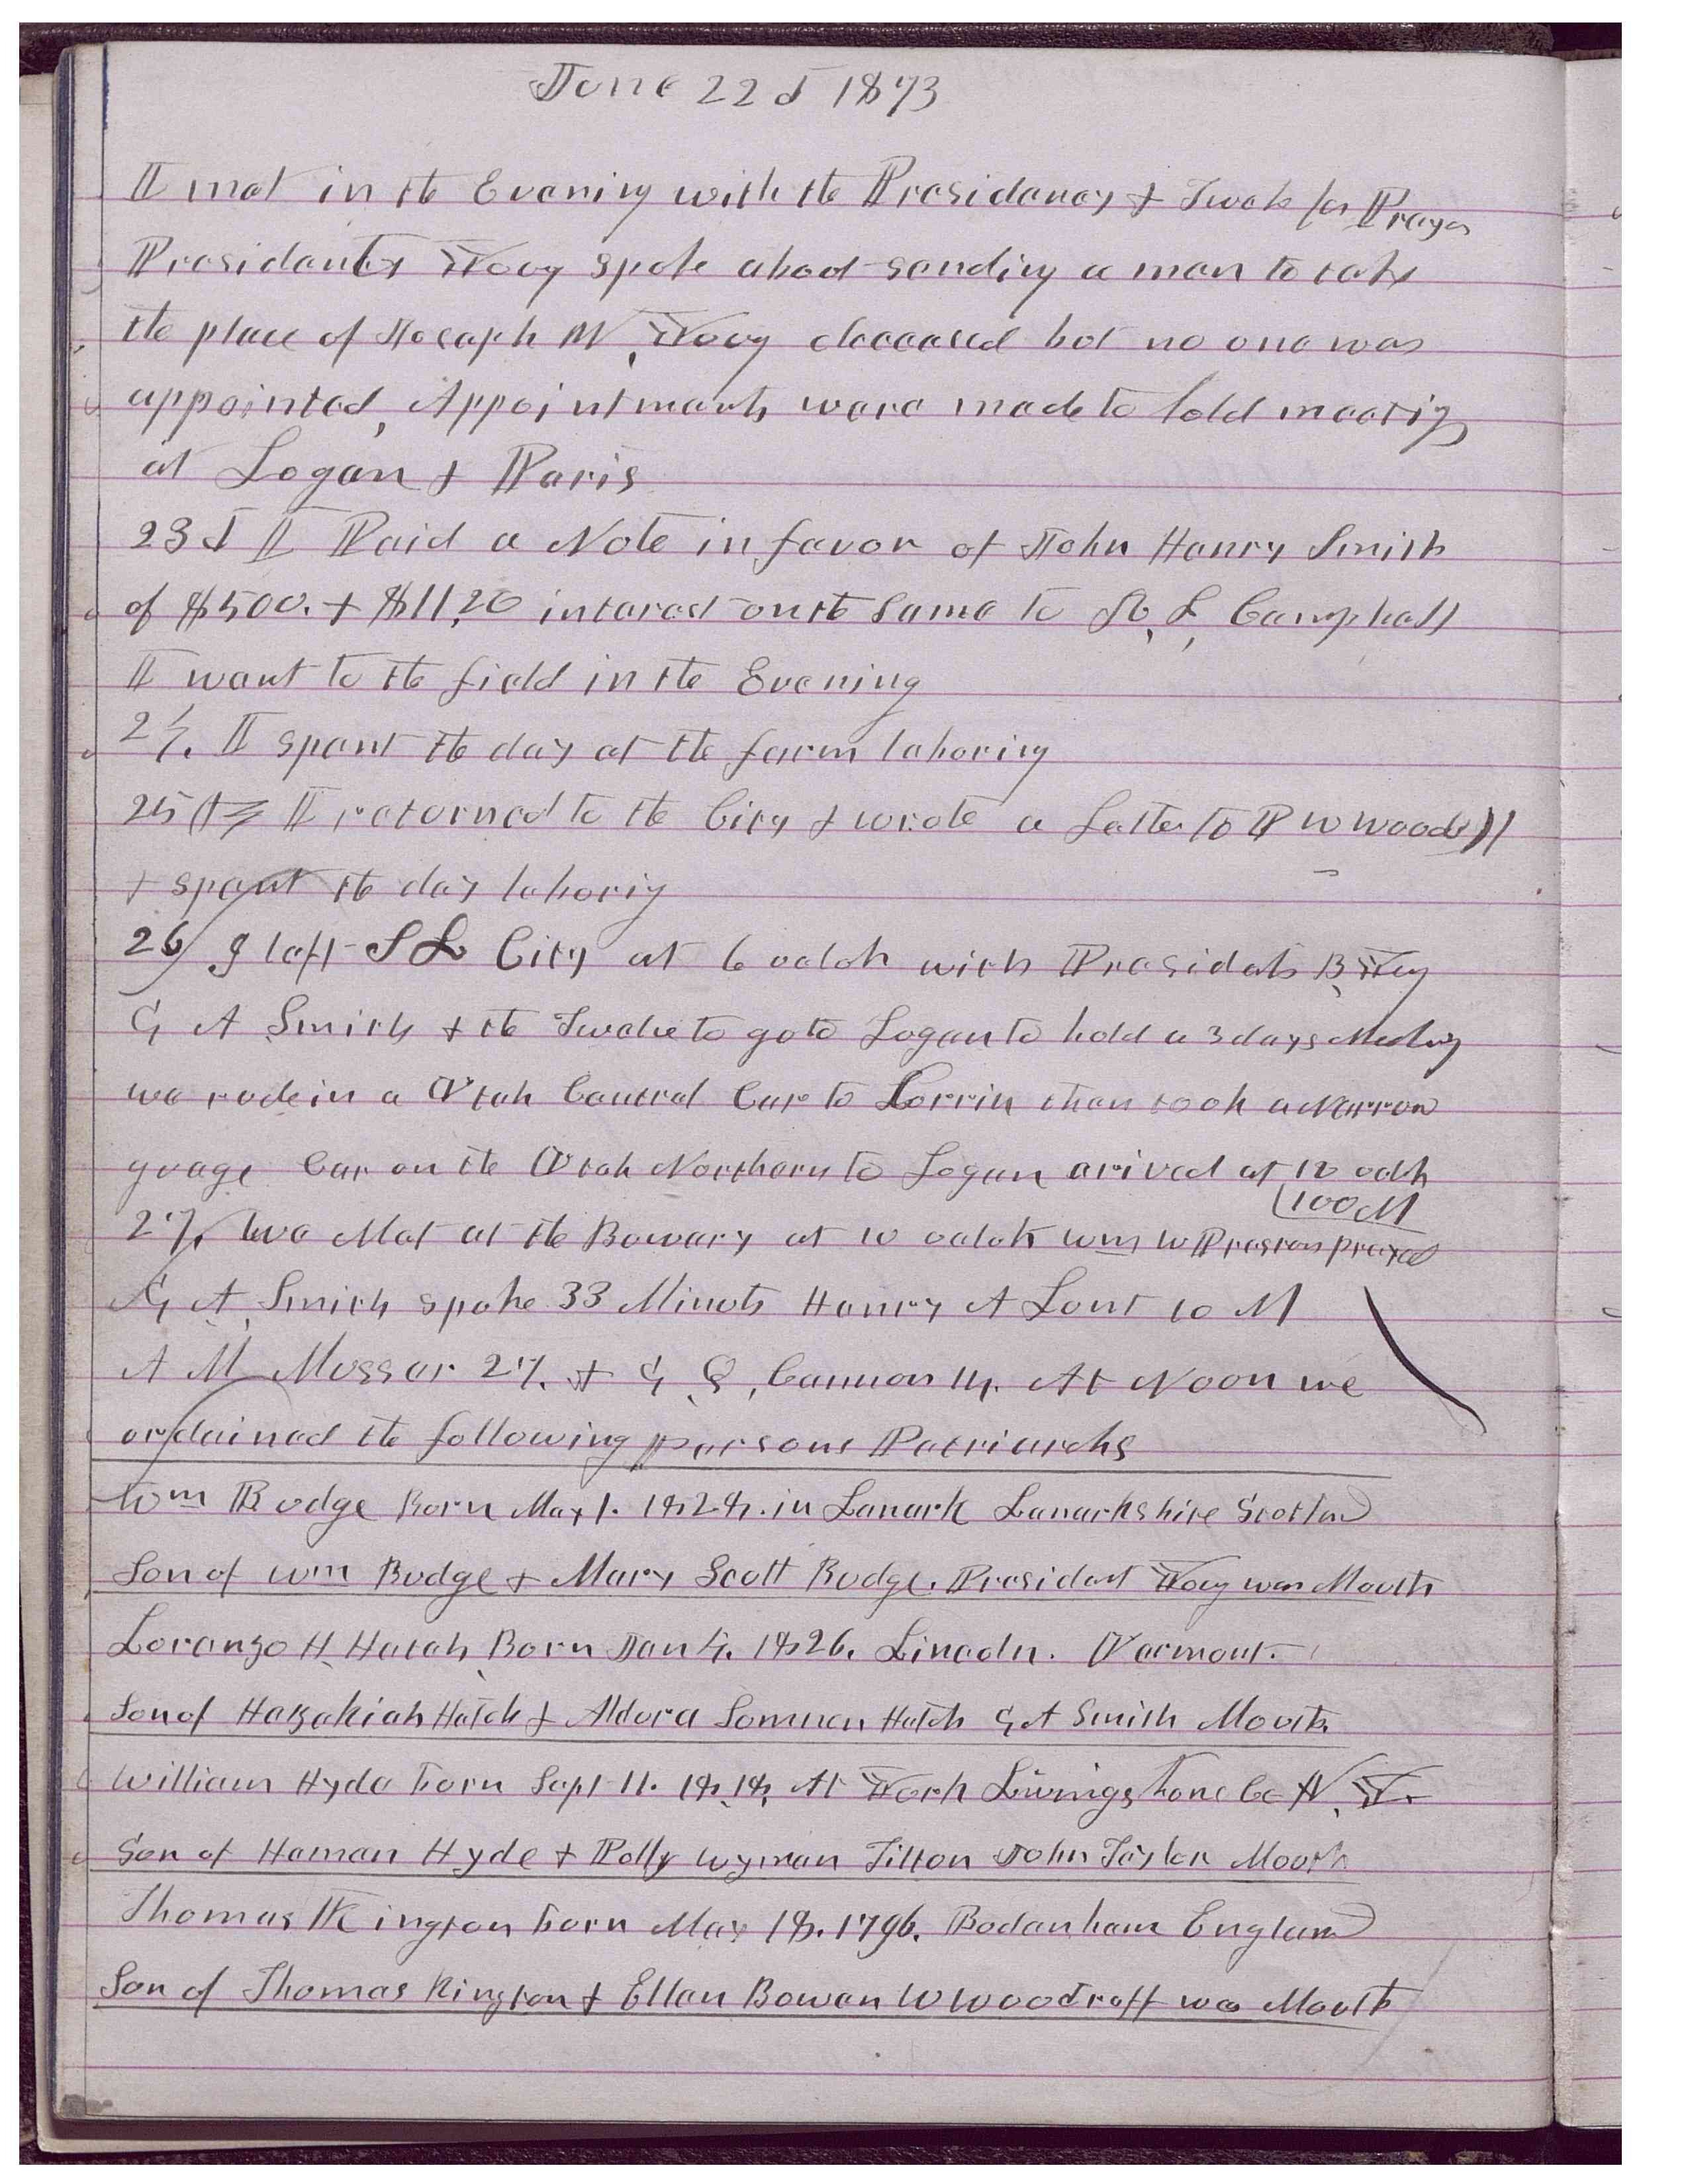 June 22d 1873
I met in the Evening with the Presidency & Twelve for Prayer
Presidents Young spoke about sending a man to take
the place of Joseph W, Young deceased but no one was
appointed, Appointments were made to hold meeting
at Logan & Paris
23d I Paid a Note in favor of John Henry Smith
of $500. & $11,20 interest on the same to R, L, Campbell
I went to the field in the Evening
24. I spent the day at the farm laboring
25th I returned to the City & wrote a Letter to P W Woodruff
& spent the day laboring
26 I left S L City at 6 oclok with Presidets B, Young
G A Smith & the Twelve to go to Logan to hold a 3 days Meeting
we rode in a Utah Central Car to Lorrin then took a Narrow
guage Car on the Utah Northern to Logan arived at 12 oclk
100 M
27, We Met at the Bowery at 10 oclok Wm W Preston prayed
G, A, Smith spoke 33 Minuts Henry A Lunt 10 M
A M Musser 27. & G, Q, Cannon 14. At Noon we
ordained the following persons Patriarchs
Wm Budge Born May 1. 1828. in Lanark Lanarkshire Scotland
Son of Wm Budge & Mary Scott Budge. President Young was Mouth
Lorenzo H, Hatch, Born Jan 4. 1826. Lincoln. Vermont.
Son of Hezekiah Hatch & Aldura Hatch G A Smith Mouth
William Hyde born Sept 11. 1818, At York Livingstone Co N, Y.
Son of Heman Hyde & Polly Wyman Tilton John Taylor Mouth
Thomas Kington born May 18. 1796. Bodenham England
Son of Thomas Kington & Ellen Bowen W Woodruff was Mouth